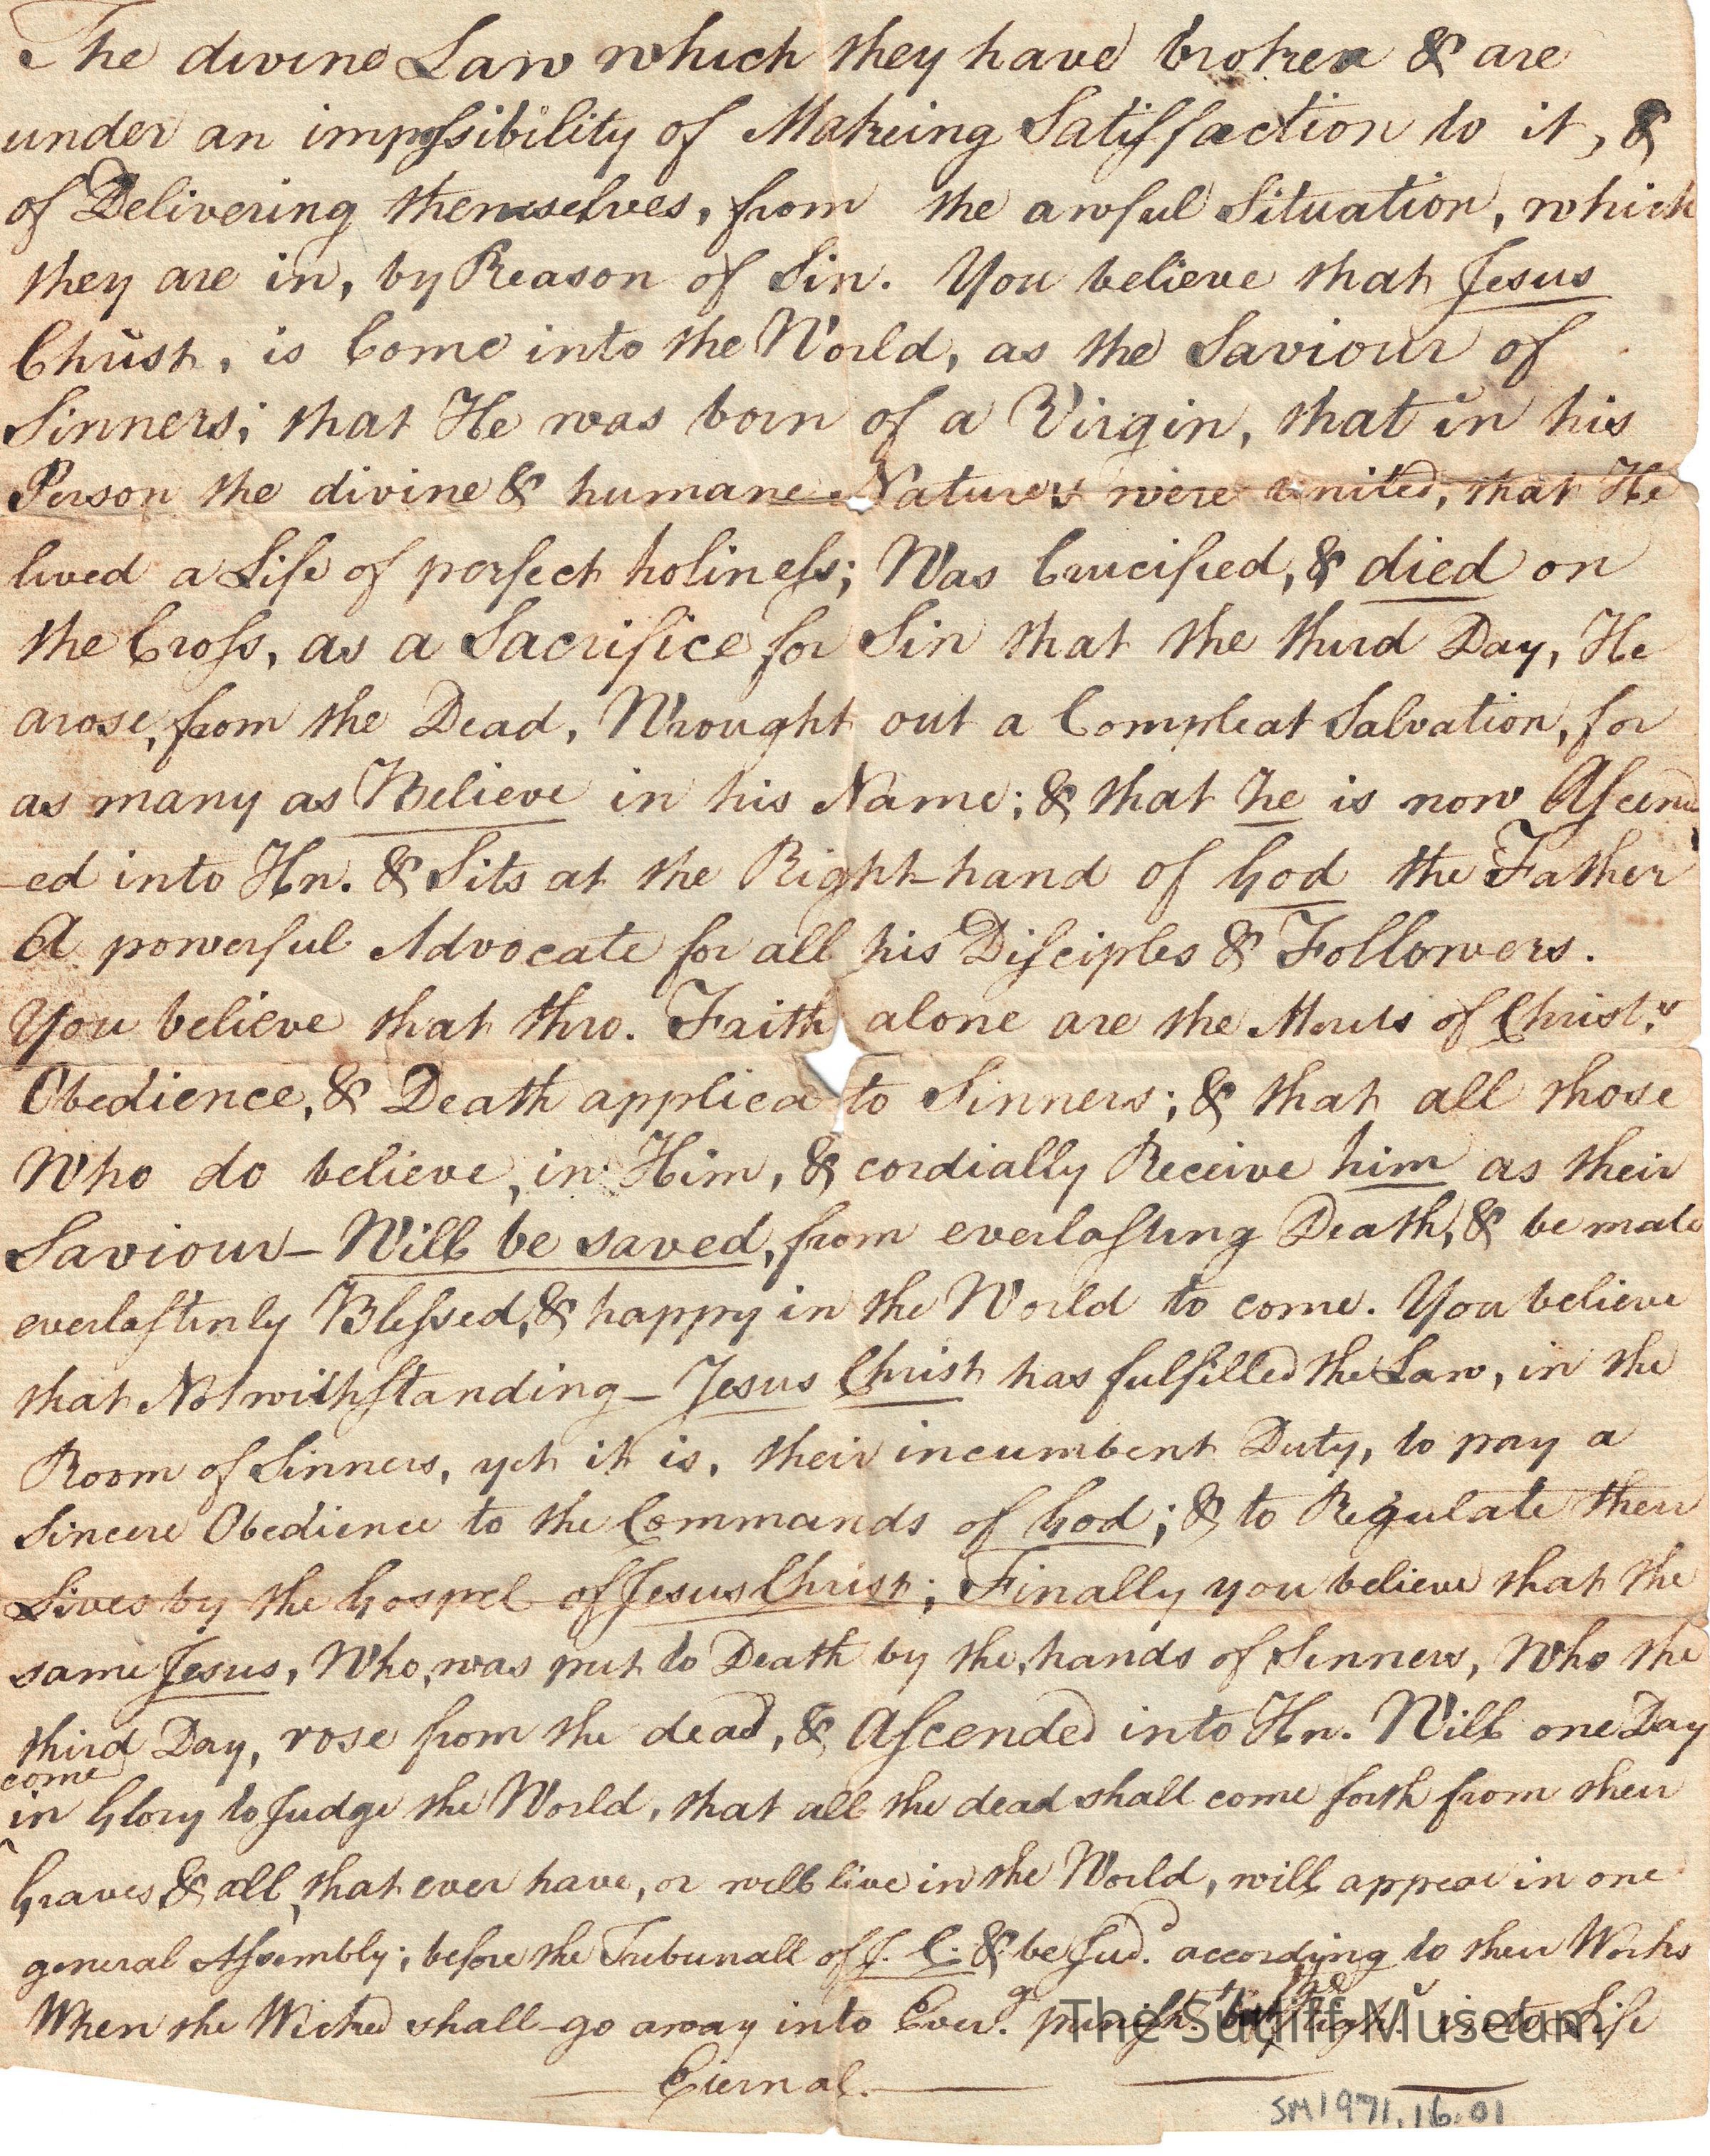 The divine Law which they have broken & are
under an impossibility of Makeing Satisfaction to it, &
of Delivering themselves, from the awful Situation, which
they are in, by Reason of Sin. You believe that Jesus
Christ, is Come into the World, as the Saviour of
Sinners; that He was born of a Virgin, that in his
Person the divine & humane Natures were united, that He
lived a Life of perfect holiness; Was Crucified, & died on
the Cross, as a Sacrifice for Sin that the third Day, He
arose, from the Dead, Wrought out a Compleat Salvation, for
as many as Believe in his Name; & that he is now Ascend
-ed into Hn. & Sits at the Right-hand of God the Father
A powerful Advocate for all his Disciples & Followers.
You believe that thro. Faith alone are the Merits of Christ.s
Obedience, & Death applied to Sinners; & that all those
Who do believe, in Him, & cordially Receive him as their
Saviour - Will be saved, from everlasting Death, & be made
everlastinly Blessed, & happy in the World to come. You believe
that Notwithstanding - Jesus Christ has fulfilled the Law, in the
Room of Sinners, yet it is, their incumbent Duty, to pay a
Sincere Obedience to the Commands of God; & to Regulate their
Lives by the Gospel of Jesus Christ; Finally you believe that the
same Jesus, Who, was put to Death by the, hands of Sinners, Who the
third Day, rose from the dead, & Ascended into Hn. Will one Day
come
in Glory to Judge the World, that all the dead shall come forth from their
Graves & all, that ever have, or will live in the World, will appear in one
general Assembly; before the Tribunall of J. C. & be Jud.d according to their Works
When the Wicked shall go away into Ever.g punish.t but into Life
Eternal.
The Sutliff Museum
SM1971.16.01